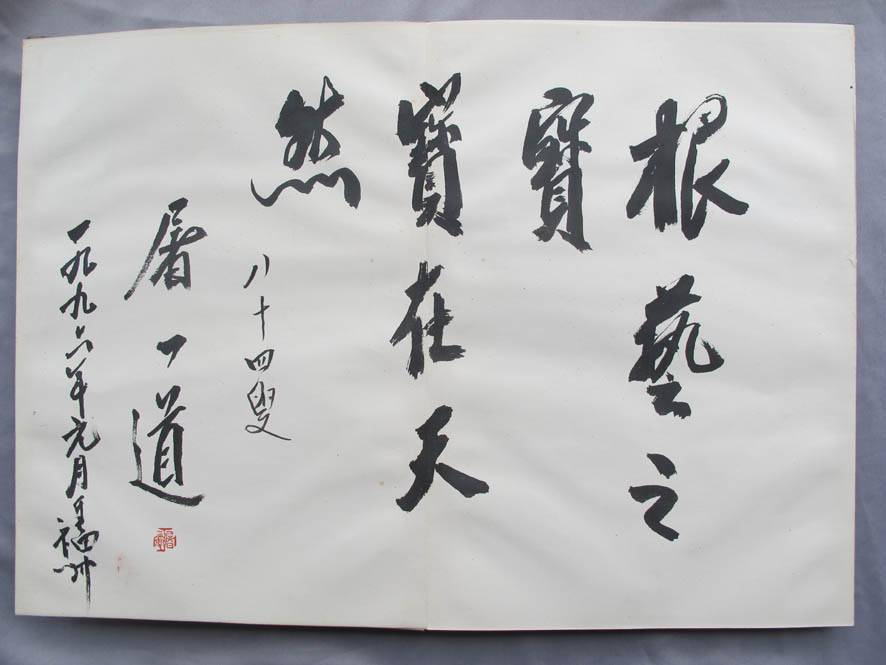 根藝之
寶
寶在天
然
八十四叟
屠一道
一九九六年元月于福州